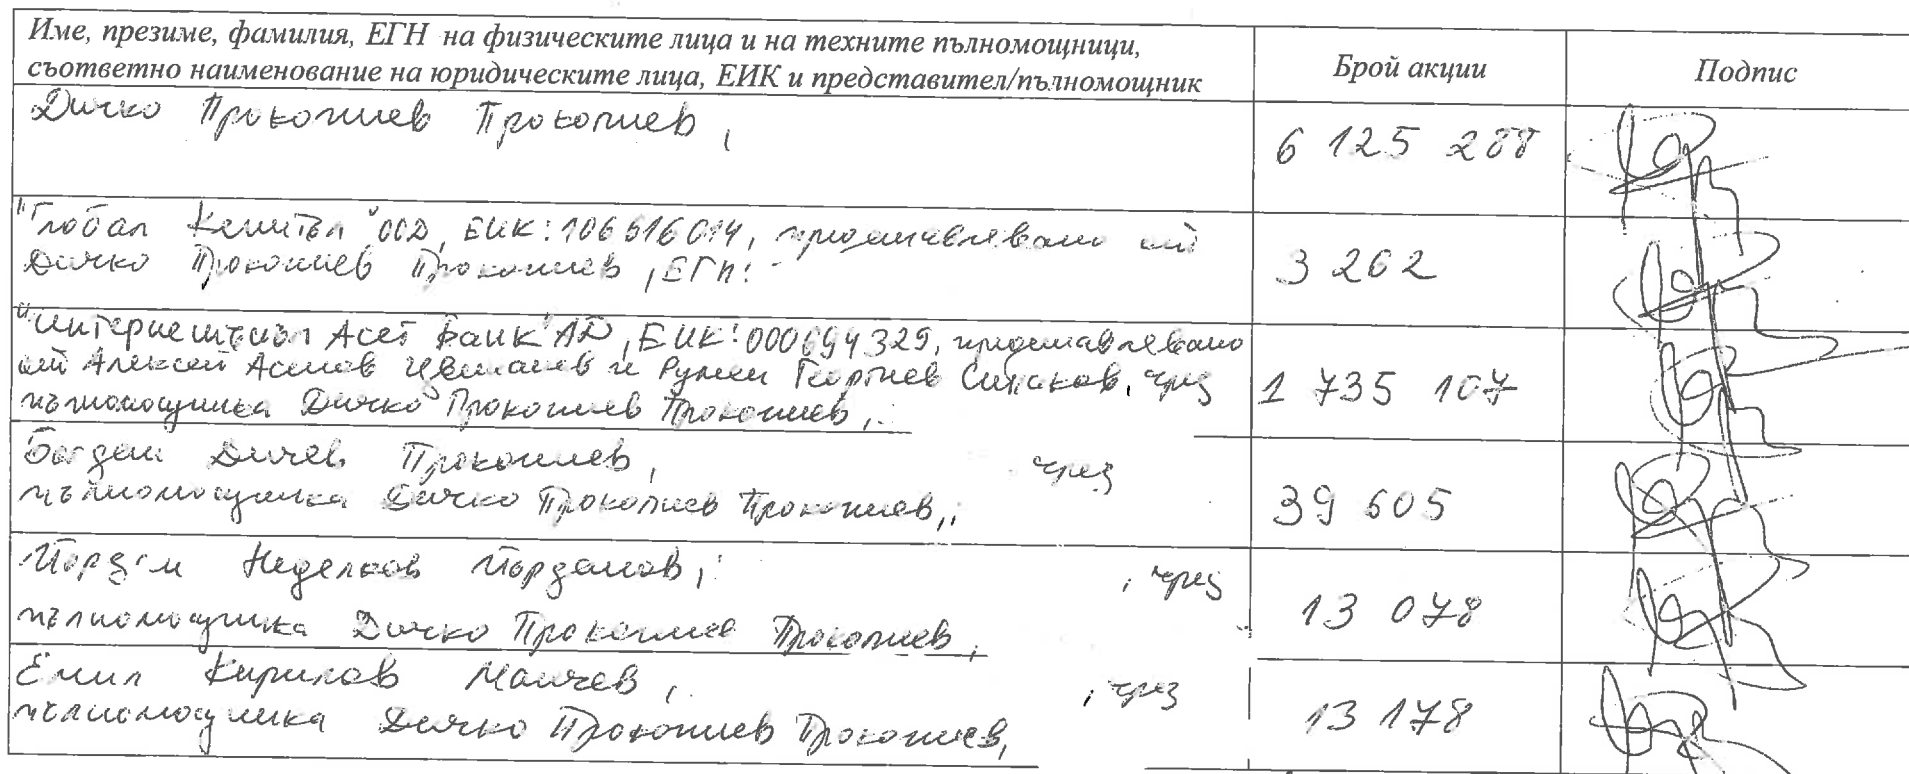 Име, презиме, фамилия, ЕГН на физическите лица и на техните пълномощници,
съответно наименование на юридическите лица, ЕИК и представител/пълномощник
Брой акции
Подпис
Дичко Прокопиев Прокопиев,
6 125 288
"Глобал Кепитъл" ООД, ЕИК: 106616014, представлявано от
Дичко Прокопиев Прокопиев, ЕГН:
3 262
"Интернешънъл Асет Банк" АД, ЕИК: 000694329, представлявано
от Алексей Асенов Цветанов и Румен Георгиев Сираков, чрез
пълномощника Дичко Прокопиев Прокопиев,
1 735 107
Богдан Дичев Прокопиев, чрез
пълномощника Дичко Прокопиев Прокопиев,
39 605
Йордан Неделков Йорданов, чрез
пълномощника Дичко Прокопиев Прокопиев,
13 078
Емил Кирилов Манчев, чрез
пълномощника Дичко Прокопиев Прокопиев,
13 178